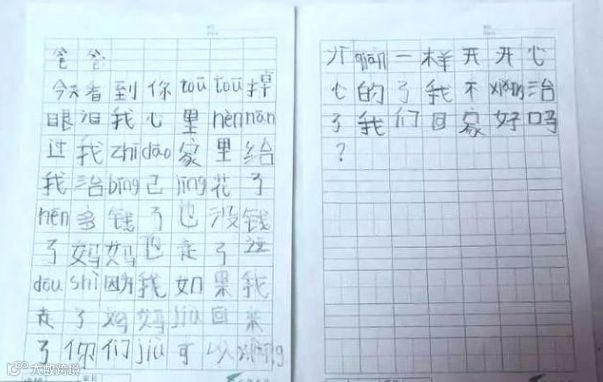 爸爸
今天看到你tōutōu掉
眼泪我心里hěnnán
过我zhīdào家里给
我治bìng己jīng花了
hěn多钱了也没钱
了妈妈也走了这
dōu shì因为我如果我
走了妈妈jiù回来
了你们jiù可以xiàng
以qián一样开开心
心的了我不xiǎng治
了我们回家好吗
?
大欧跨境